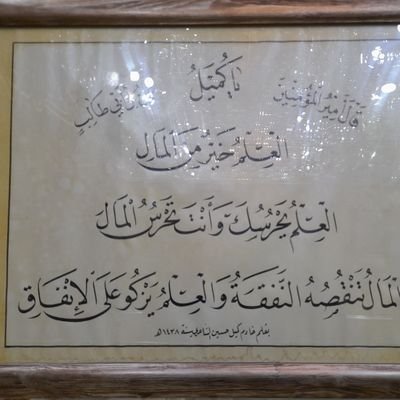 قال أمير المؤمنين علي بن أبي طالب
يا كُمَيْل
العِلْمُ خَيْرٌ مِنَ المَالِ
العِلْمُ يَحْرُسُكَ وَأَنْتَ تَحْرُسُ المَالَ
المَالُ تَنْقُصُهُ النَّفَقَةُ وَالْعِلْمُ يَزْكُو عَلَى الإِنْفَاقِ
بقلم خادم كميل حسين سنة ١٤٣٨هـ